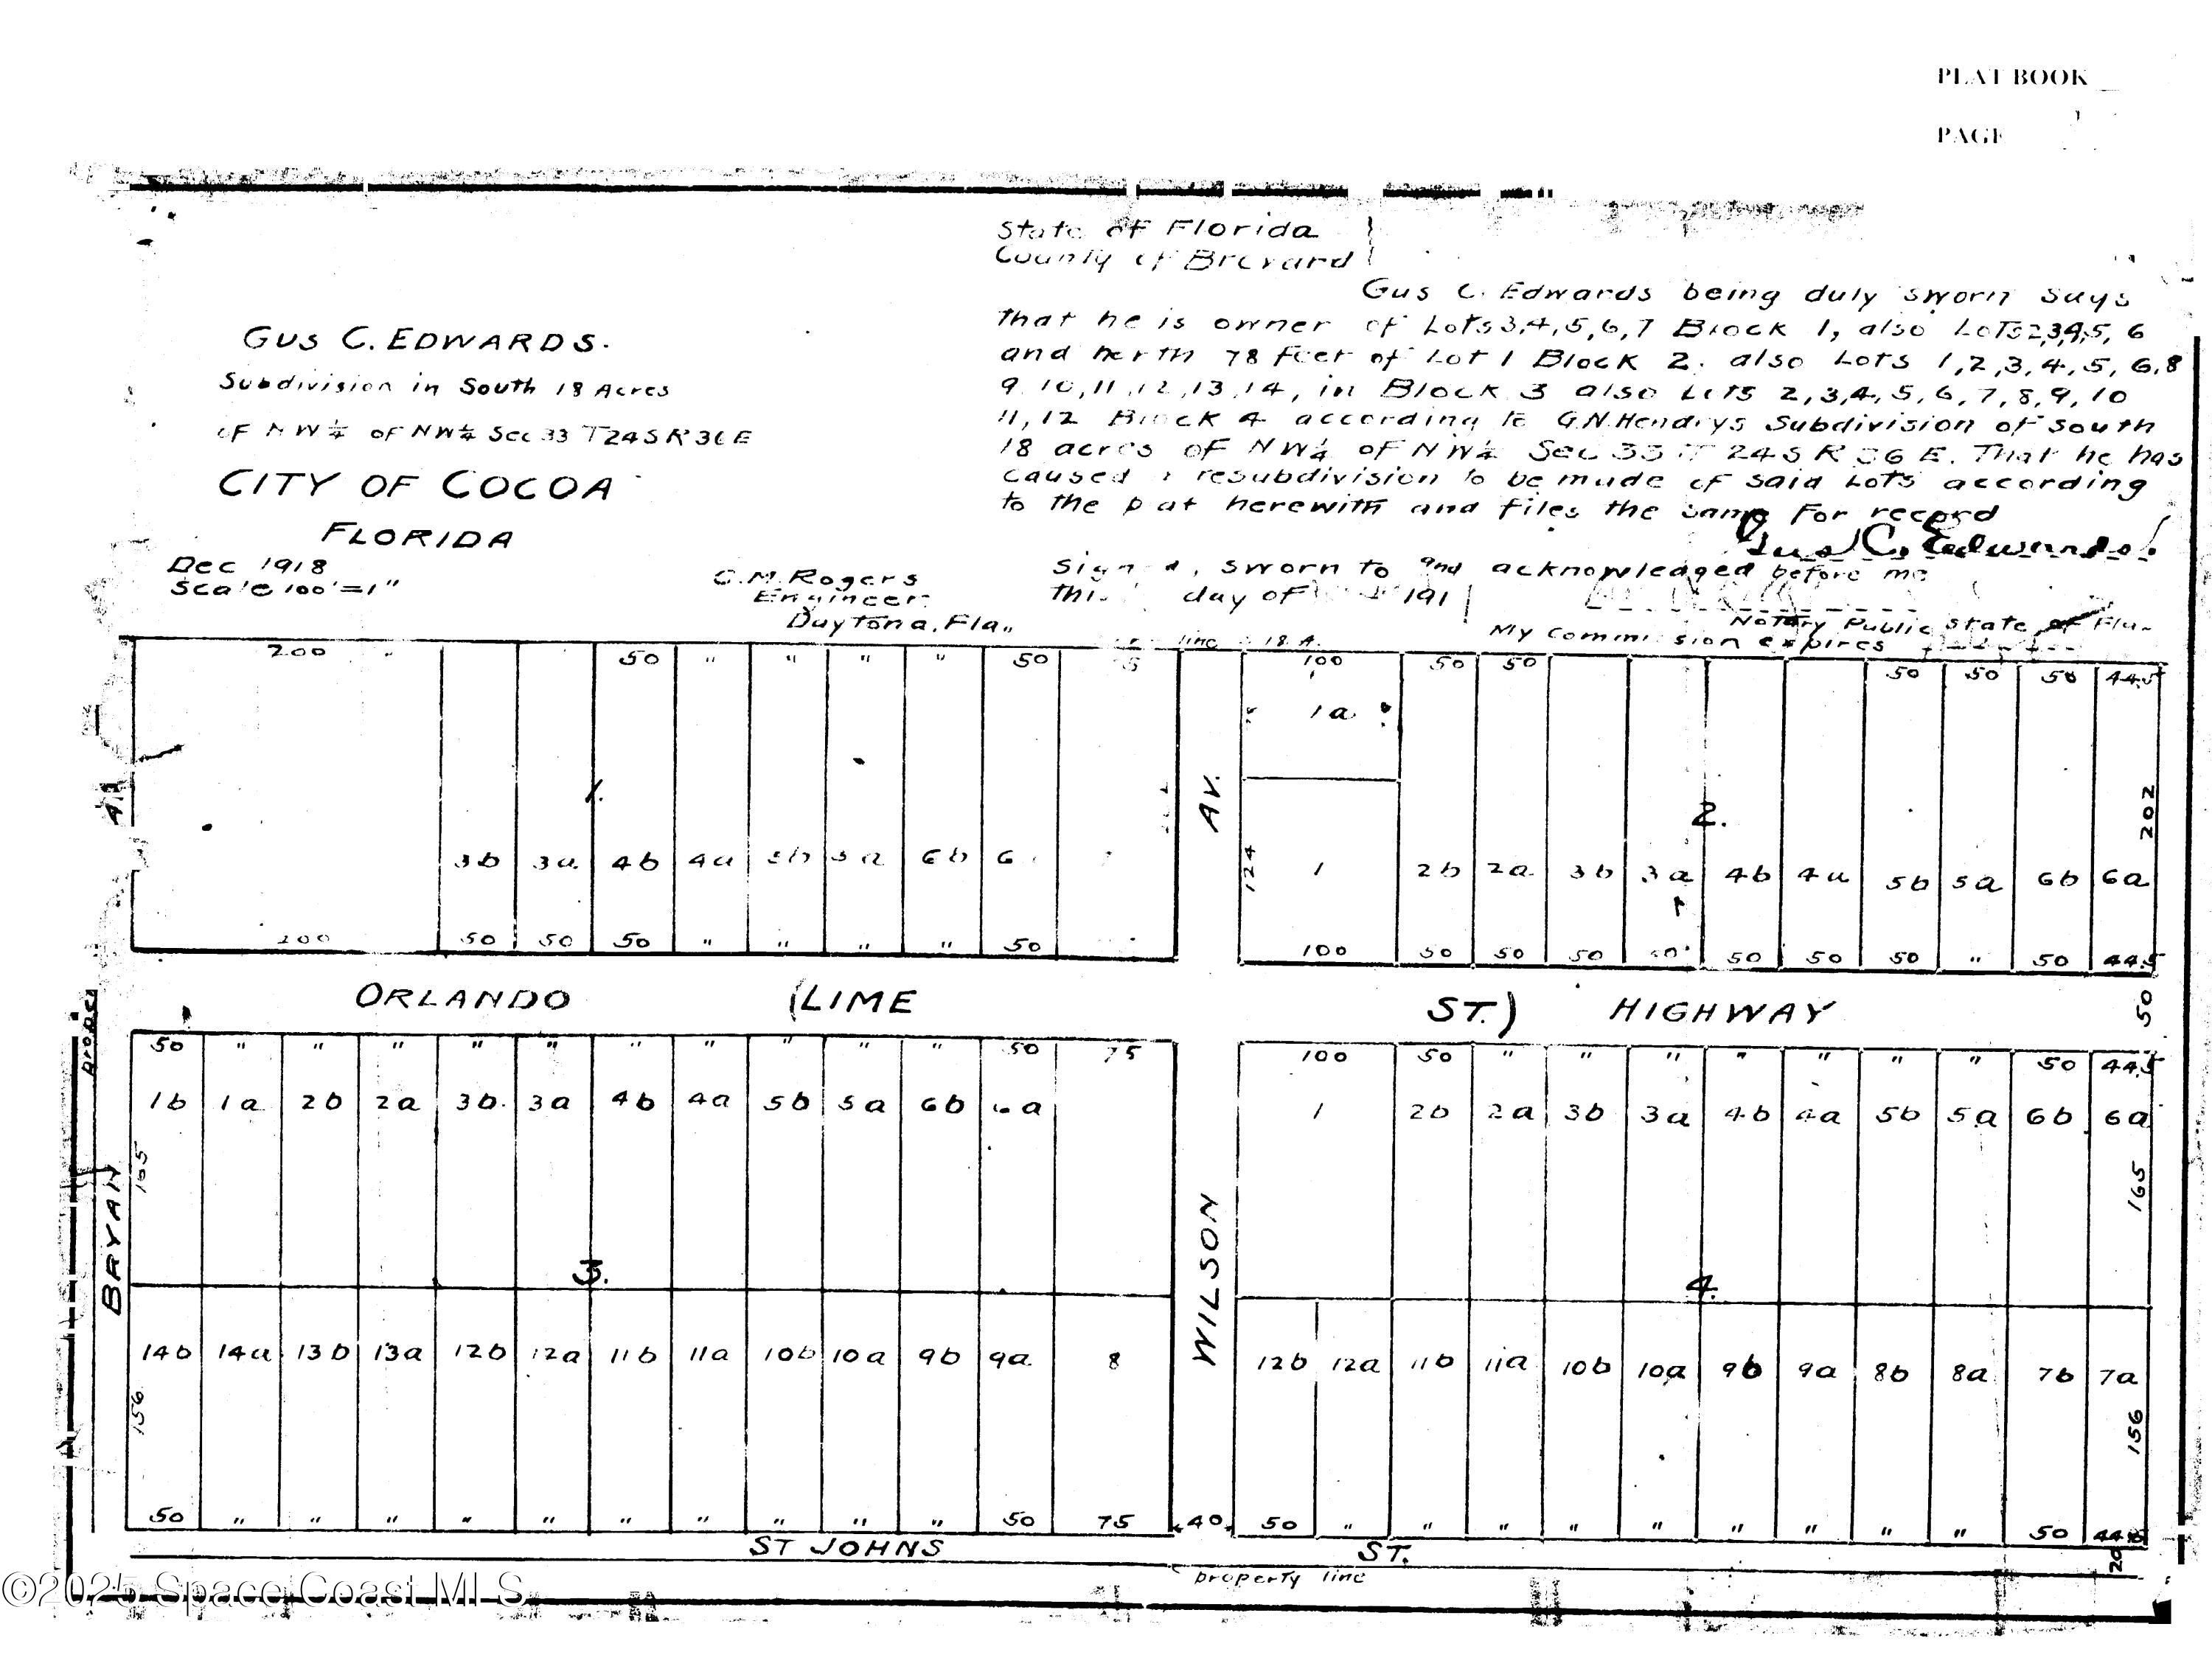 PLAT BOOK
PAGE
State of Florida
County of Brevard
Gus C. Edwards being duly sworn says
that he is owner of Lots 3,4,5,6,7 Block 1, also Lots 2,3,4,5,6
and north 78 feet of Lot 1 Block 2. also Lots 1,2,3,4,5,6,8
9,10,11,12,13,14, in Block 3 also Lots 2,3,4,5,6,7,8,9,10
11,12 Block 4 according to G.N. Hendrys Subdivision of South
18 acres of NW¼ of NW¼ Sec 33 T 24 S R 36 E. That he has
caused a resubdivision to be made of said Lots according
to the plat herewith and files the same for record
Gus C. Edwards.
Signed, sworn to and acknowledged before me
this day of 191
Notary Public State of Fla.
My Commission expires
GUS C. EDWARDS.
Subdivision in South 18 Acres
of NW¼ of NW¼ Sec 33 T24S R 36 E
CITY OF COCOA
FLORIDA
Dec 1918
Scale 100'=1"
C.M. Rogers
Engineer
Daytona, Fla.
line 18 A.
200 50 " " " " 50
1.
3b 3a 4b 4a 5b 5a 6b 6
200 50 50 50 " " " " 50
AV.
100 50 50 50 50 50 44.5
1a
2.
202
124
1 2b 2a 3b 3a 4b 4a 5b 5a 6b 6a
100 50 50 50 50 50 50 50 " 50 44.5
ORLANDO (LIME ST.) HIGHWAY
50
50 " " " " " " " " " " 50 75
1b 1a 2b 2a 3b 3a 4b 4a 5b 5a 6b 6a
165
3.
14b 14a 13b 13a 12b 12a 11b 11a 10b 10a 9b 9a 8
156
50 " " " " " " " " " " 50 75
BRYAN
WILSON
40
100 50 " " " " " " " 50 44.5
1 2b 2a 3b 3a 4b 4a 5b 5a 6b 6a
165
4.
12b 12a 11b 11a 10b 10a 9b 9a 8b 8a 7b 7a
156
50 " " " " " " " " " 50 44.5
20
ST JOHNS ST.
property line
©2025 Space Coast MLS